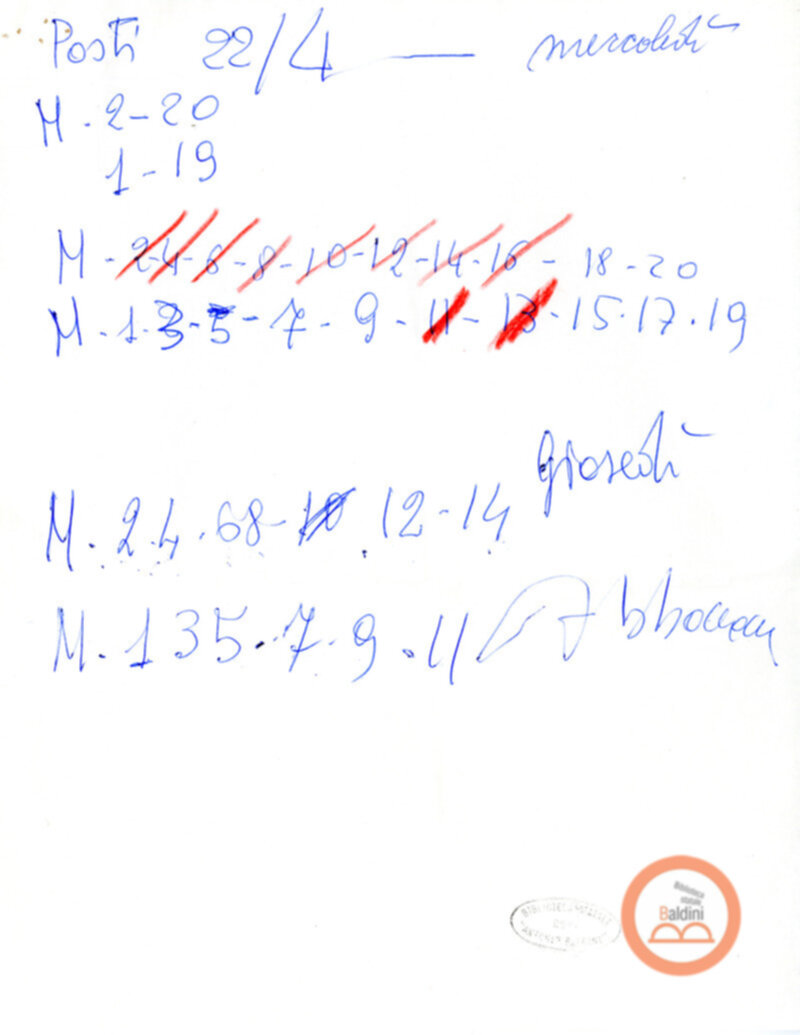 Posti 22/4 — mercoledì
M. 2-20
1-19
M-2-4-6-8-10-12-14-16-18-20
M.1.3-5-7-9-11-13-15.17.19
giovedì
M.2.4.68-10 12-14
M.135.7.9.11
Biblioteca
statale
Baldini